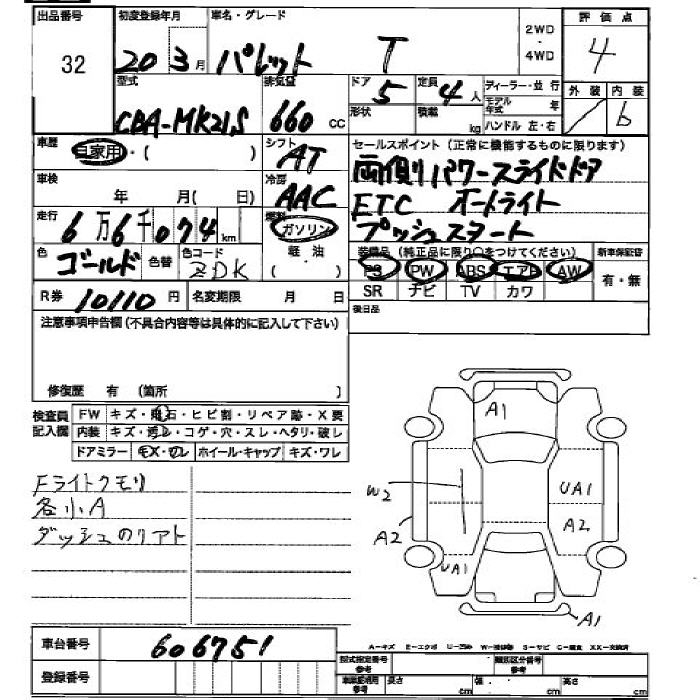 出品番号
32
初度登録年月
20 3月
車名・グレード
パレット T
2WD
・
4WD
評価点
4
型式
CBA-MK21S
排気量
660 CC
ドア
5
定員
4人
形状
積載
kg
ディーラー・並行
モデル年式 年
ハンドル 左・右
外装 内装
b
車歴
自家用・( )
シフト
AT
セールスポイント(正常に機能するものに限ります)
両側パワースライドドア
ETC オートライト
プッシュスタート
車検
年 月( 日)
冷房
AAC
走行
6万6千074km
燃料
ガソリン
軽・油
( )
色
ゴールド
色替
色コード
ZDK
装備品(純正品に限り○をつけてください)
新車保証書
PS PW ABS エアB AW
有・無
SR ナビ TV カワ
R券 10110円
名変期限 月 日
後日品
注意事項申告欄(不具合内容等は具体的に記入して下さい)
修復歴 有 (箇所 )
検査員記入欄
FW キズ・飛石・ヒビ割・リペア跡・X要
内装 キズ・汚れ・コゲ・穴・スレ・ヘタリ・破レ
ドアミラー キズ・ワレ ホイール・キャップ キズ・ワレ
Fライトクモリ
各小A
ダッシュのリアト
A1
W2
A2
UA1
UA1
A2
A1
車台番号
606751
登録番号
A-キズ E-エクボ U-凹み W-補修跡 S-サビ C-腐食 XX-交換済
型式指定番号
参考
類別区分番号
参考
車庫証明用
参考
長さ cm 幅 cm 高さ cm